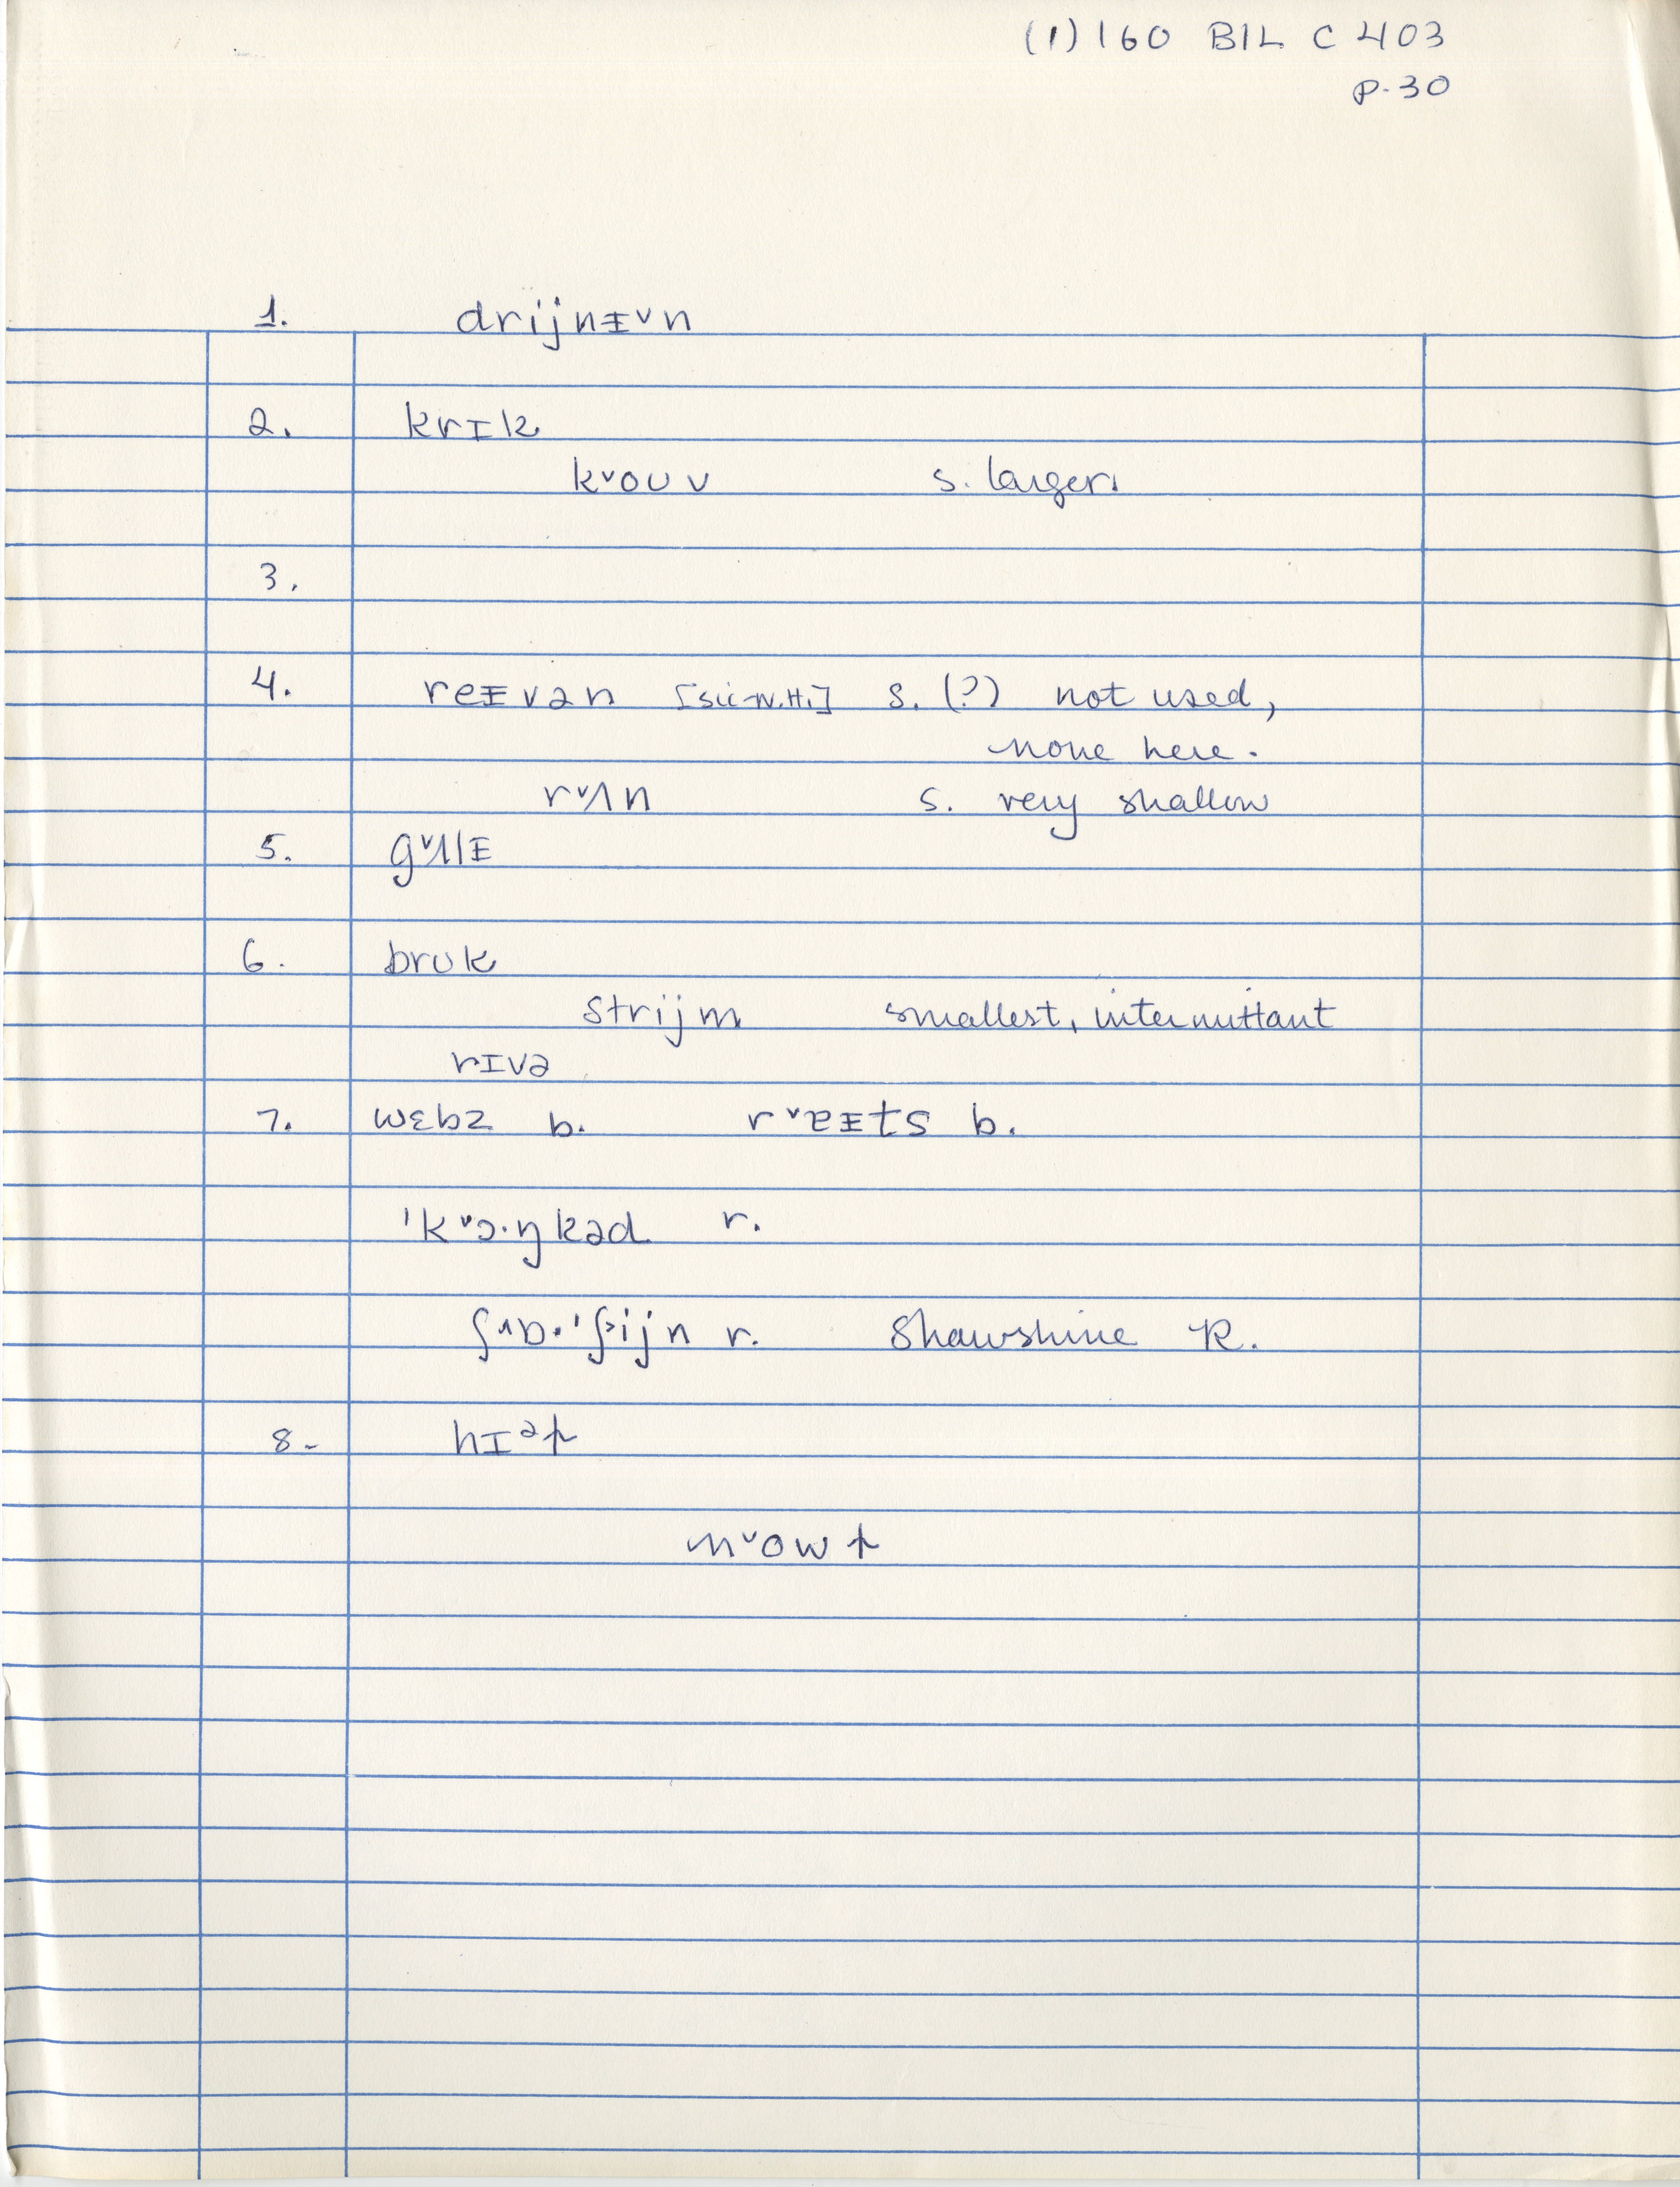 (1) 160 BIL C 403
p. 30
1. drijnᵻ˅n
2. krɪk
k˅oʊv s. larger.
3.
4. reᵻvən [sic-N.H.] s. (?) not used,
none here.
r˅ʌn s. very shallow
5. g˅ʌlᵻ
6. brʊk
strijm smallest, intermittant
rɪvə
7. wɛbz b. r˅ɐᵻts b.
ˈk˅ɔ·ŋkəd r.
ʃ˄ɒ·ˈʃ˃ijn r. Shawshine R.
8. hɪᵊp